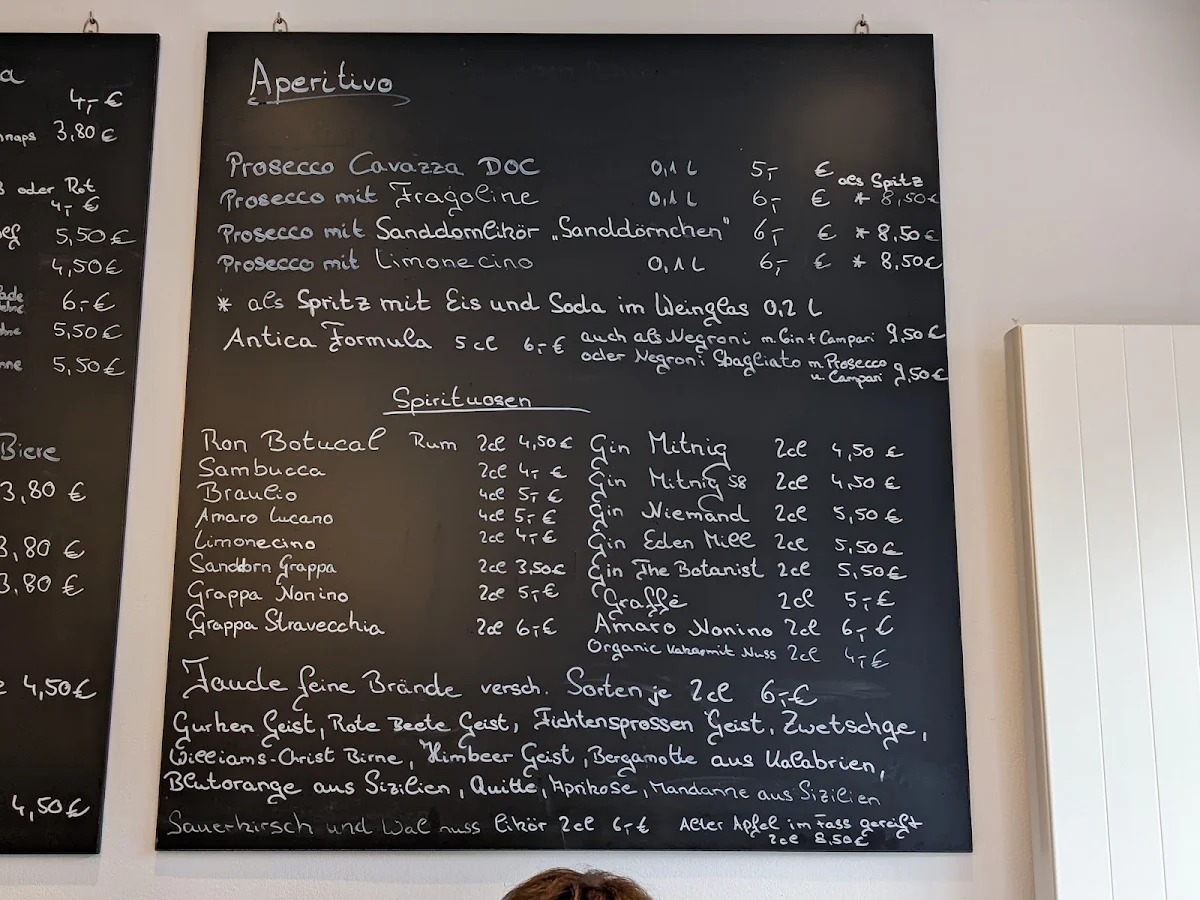 a
4,- €
naps 3,80 €
oder Rot
4,- €
5,50 €
4,50 €
6,- €
5,50 €
5,50 €
Biere
3,80 €
3,80 €
3,80 €
4,50 €
4,50 €
Aperitivo
Prosecco Cavazza DOC 0,1 L 5,- €
als Spitz
Prosecco mit Fragoline 0,1 L 6,- € * 8,50€
Prosecco mit Sanddornlikör „Sanddörnchen" 6,- € * 8,50€
Prosecco mit Limonecino 0,1 L 6,- € * 8,50€
* als Spritz mit Eis und Soda im Weinglas 0,2 L
Antica Formula 5 cl 6,- € auch als Negroni m. Gin + Campari 9,50€
oder Negroni Sbagliato m. Prosecco
u. Campari 9,50€
Spirituosen
Ron Botucal Rum 2cl 4,50€
Sambucca 2cl 4,- €
Braulio 4cl 5,- €
Amaro Lucano 4cl 5,- €
Limonecino 2cl 4,- €
Sanddorn Grappa 2cl 3,50€
Grappa Nonino 2cl 5,- €
Grappa Stravecchia 2cl 6,- €
Gin Mitnig 2cl 4,50 €
Gin Mitnig 58 2cl 4,50 €
Gin Niemand 2cl 5,50 €
Gin Eden Mill 2cl 5,50€
Gin The Botanist 2cl 5,50€
Graffè 2cl 5,- €
Amaro Nonino 2cl 6,- €
Organic mit Nuss 2cl 4,- €
Faude feine Brände versch. Sorten je 2cl 6,- €
Gurken Geist, Rote Beete Geist, Fichtensprossen Geist, Zwetschge,
Williams-Christ Birne, Himbeer Geist, Bergamotte aus Kalabrien,
Blutorange aus Sizilien, Quitte, Aprikose, Mandarine aus Sizilien
Sauerkirsch und Walnuss likör 2cl 6,- € Alter Apfel im Fass gereift
2cl 8,50€